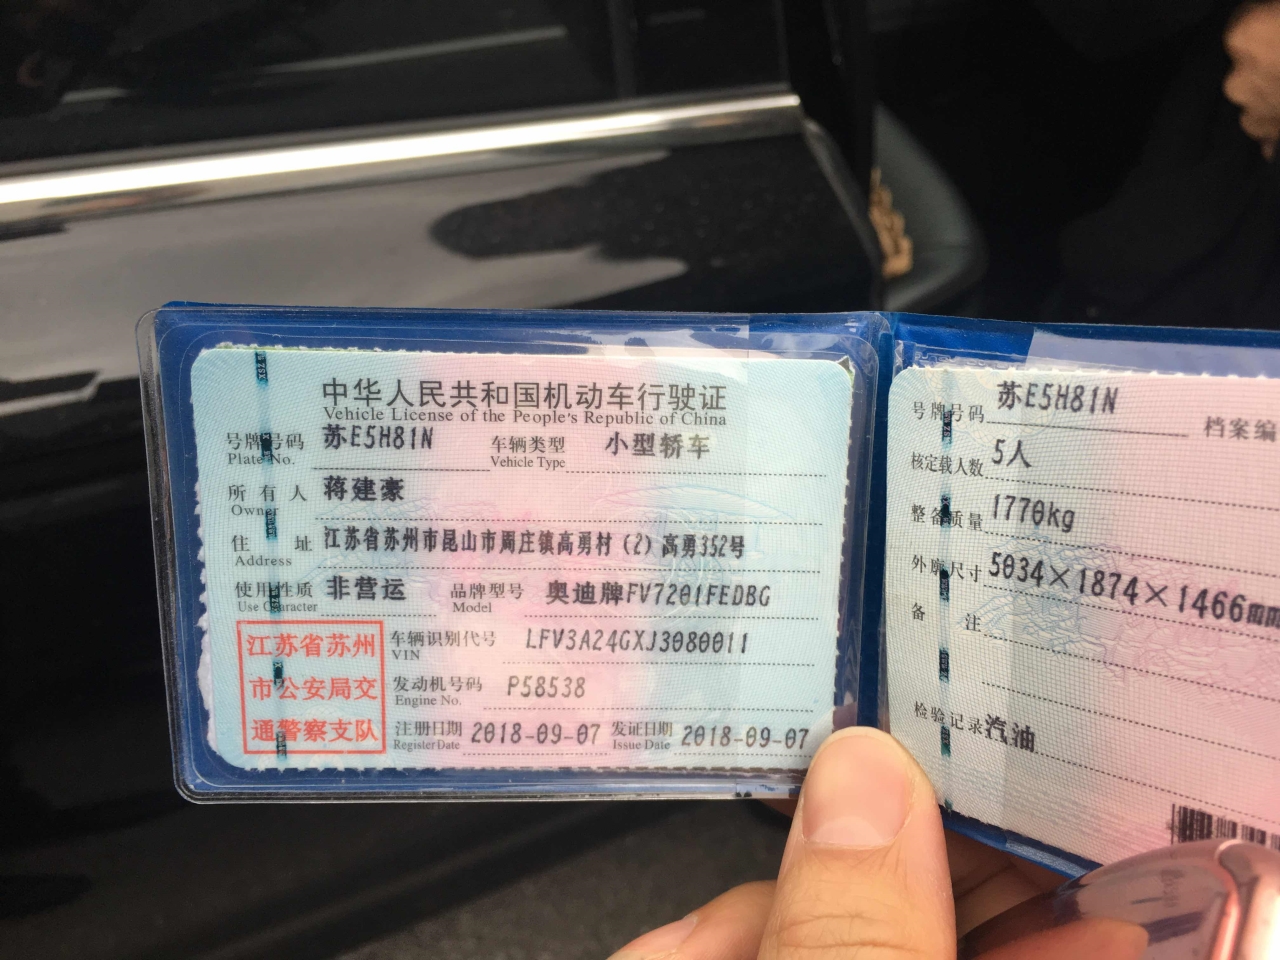 中华人民共和国机动车行驶证
Vehicle License of the People's Republic of China
号牌号码 苏E5H81N 车辆类型 小型轿车
Plate No. Vehicle Type
所有人 蒋建豪
Owner
住址 江苏省苏州市昆山市周庄镇高勇村（2）高勇352号
Address
使用性质 非营运 品牌型号 奥迪牌FV7201FEDBG
Use Character Model
江苏省苏州
市公安局交
通警察支队
车辆识别代号 LFV3A24GXJ3080011
VIN
发动机号码 P58538
Engine No.
注册日期 2018-09-07 发证日期 2018-09-07
Register Date Issue Date
号牌号码 苏E5H81N 档案编
核定载人数 5人
整备质量 1770kg
外廓尺寸 5034×1874×1466mm
备注
检验记录 汽油